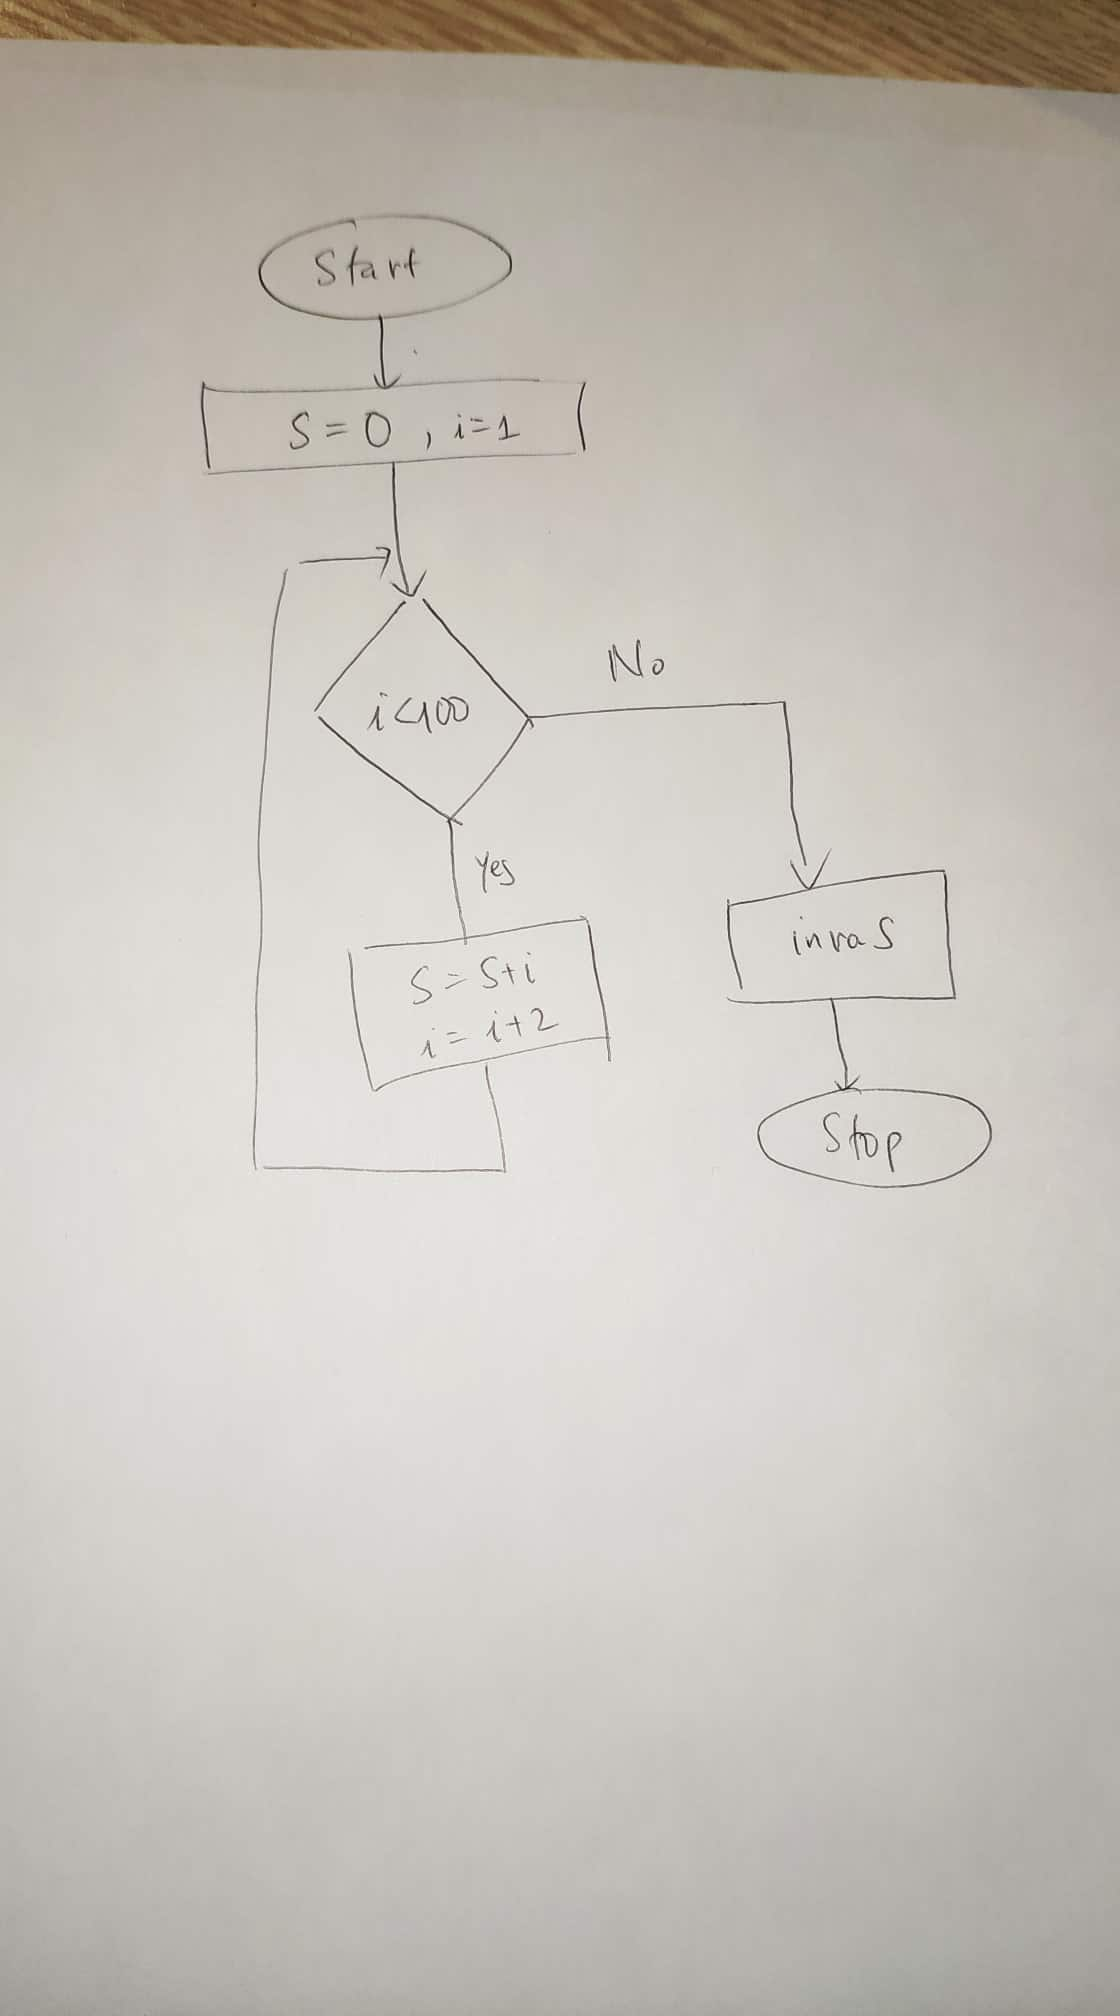 Start
S = 0 , i=1
i<100
No
Yes
S = S+i
i = i+2
in ra S
Stop